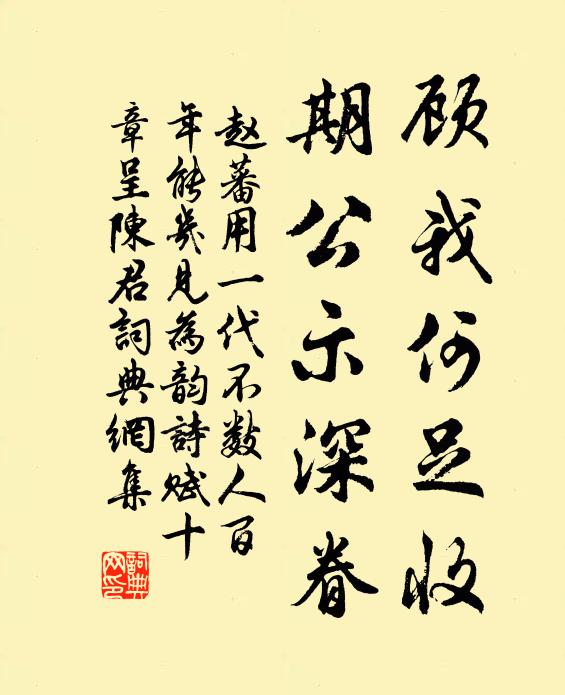 顾我何足收
期公示深眷
赵蕃用一代不数人百
年能几见为韵诗赋十
章呈陳君詞典網集
詞典网印